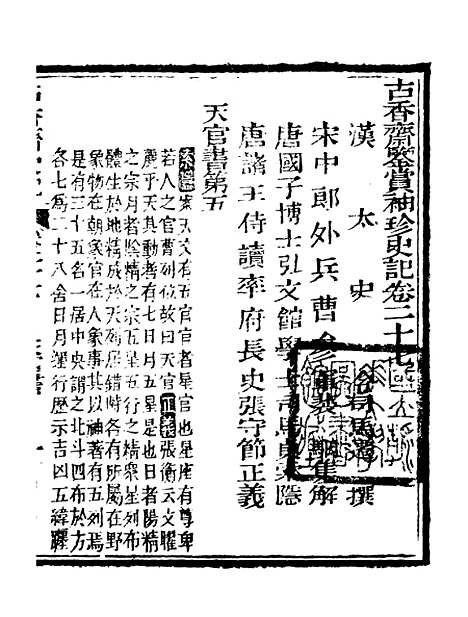 古香齋鑒賞袖珍史記卷二十七
漢太史令司馬遷撰
宋中郎外兵曹參軍裴駰集解
唐國子博士弘文館學士司馬貞索隱
唐諸王侍讀率府長史張守節正義
天官書第五
索隱案天文有五官官者星官也星座有尊卑
若人之官曹列位故曰天官正義張衡云文曜
麗乎天其動者有七日月五星是也日者陽精
之宗月者陰精之宗五星五行之精衆星列布
體生於地精成於天列居錯峙各有所屬在野
象物在朝象官在人象事其以神著有五列焉
是有三十五名一居中央謂之北斗四布於方
各七爲二十八舍日月運行歷示吉凶五緯躔